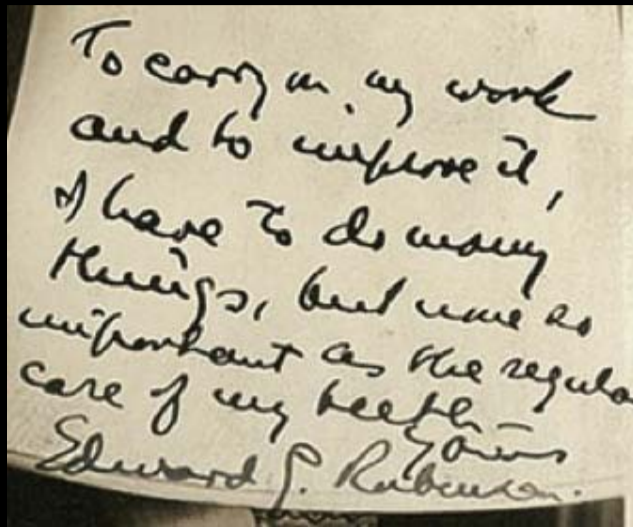 To carry on my work
and to improve it,
I have to do many
things, but none so
important as the regula
care of my teeth
Yours
Edward G. Robinson.